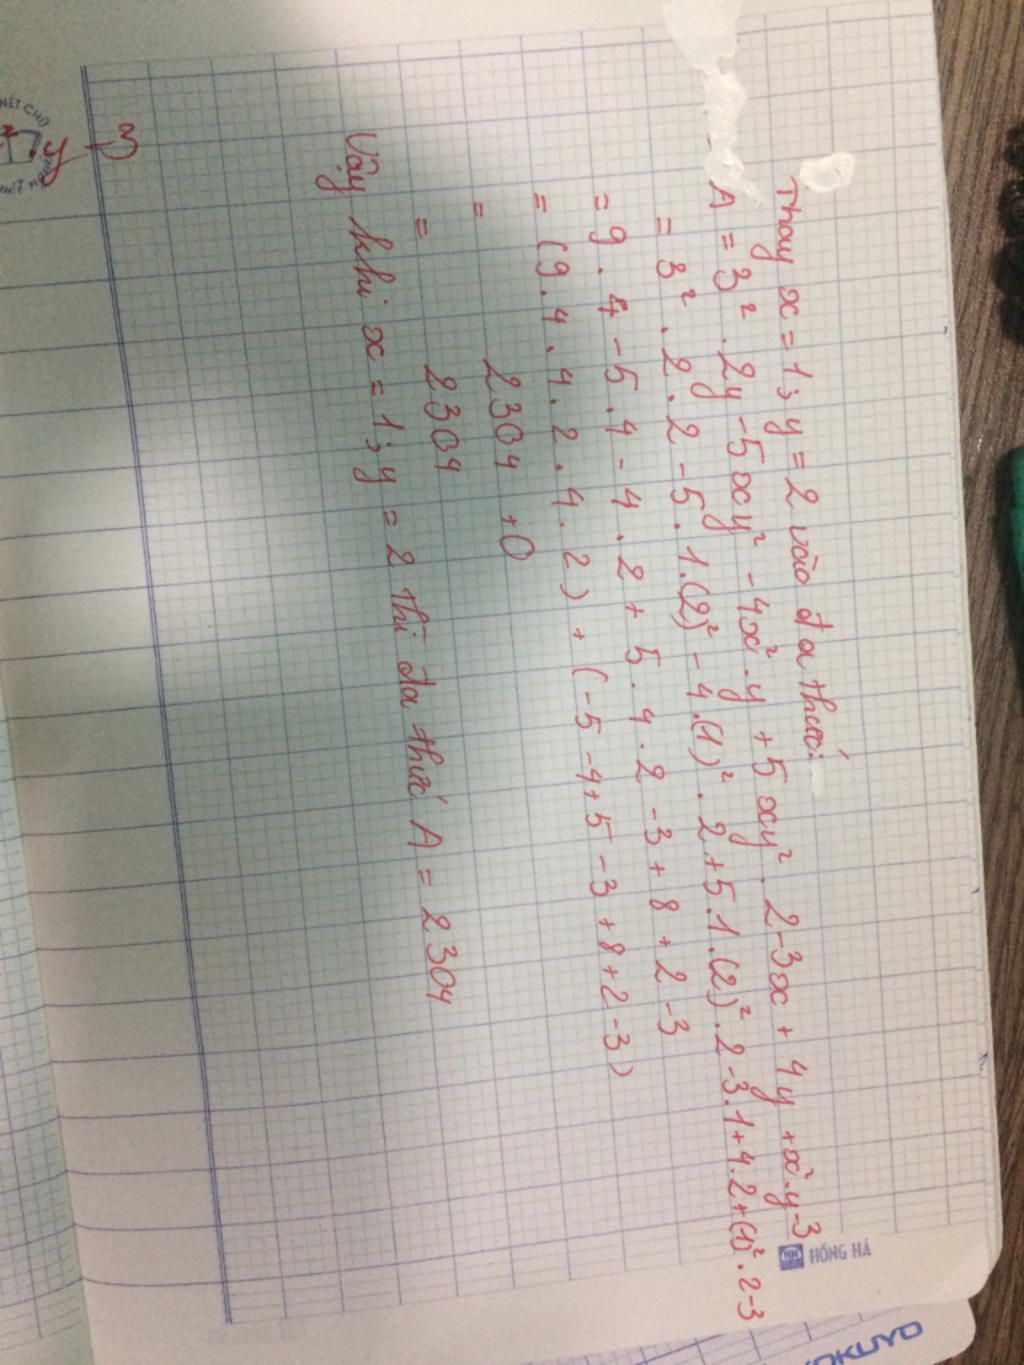 Thay x = 1; y = 2 vào đa thức:
A = 3² . 2y - 5xy² - 4x².y + 5xy² . 2 - 3x + 4y + x².y - 3
= 3² . 2 . 2 - 5 . 1.(2)² - 4.(1)² . 2 + 5.1.(2)² . 2 - 3.1 + 4.2 + (1)² . 2 - 3
= 9 . 4 - 5 . 4 - 4 . 2 + 5 . 4 . 2 - 3 + 8 + 2 - 3
= (9 . 4 . 4 . 2 . 4 . 2) + (-5 - 4 + 5 - 3 + 8 + 2 - 3)
= 2304 + 0
= 2304
Vậy khi x = 1; y = 2 thì đa thức A = 2304
3
y
NÉT CHỮ
HỒNG HÀ
KOKUYO